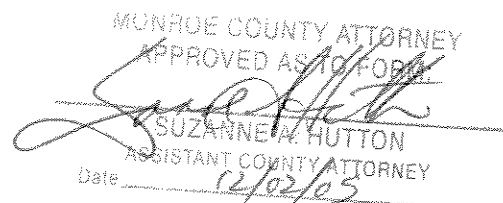 MONROE COUNTY ATTORNEY
APPROVED AS TO FORM:
SUZANNE A. HUTTON
ASSISTANT COUNTY ATTORNEY
Date 12/02/05